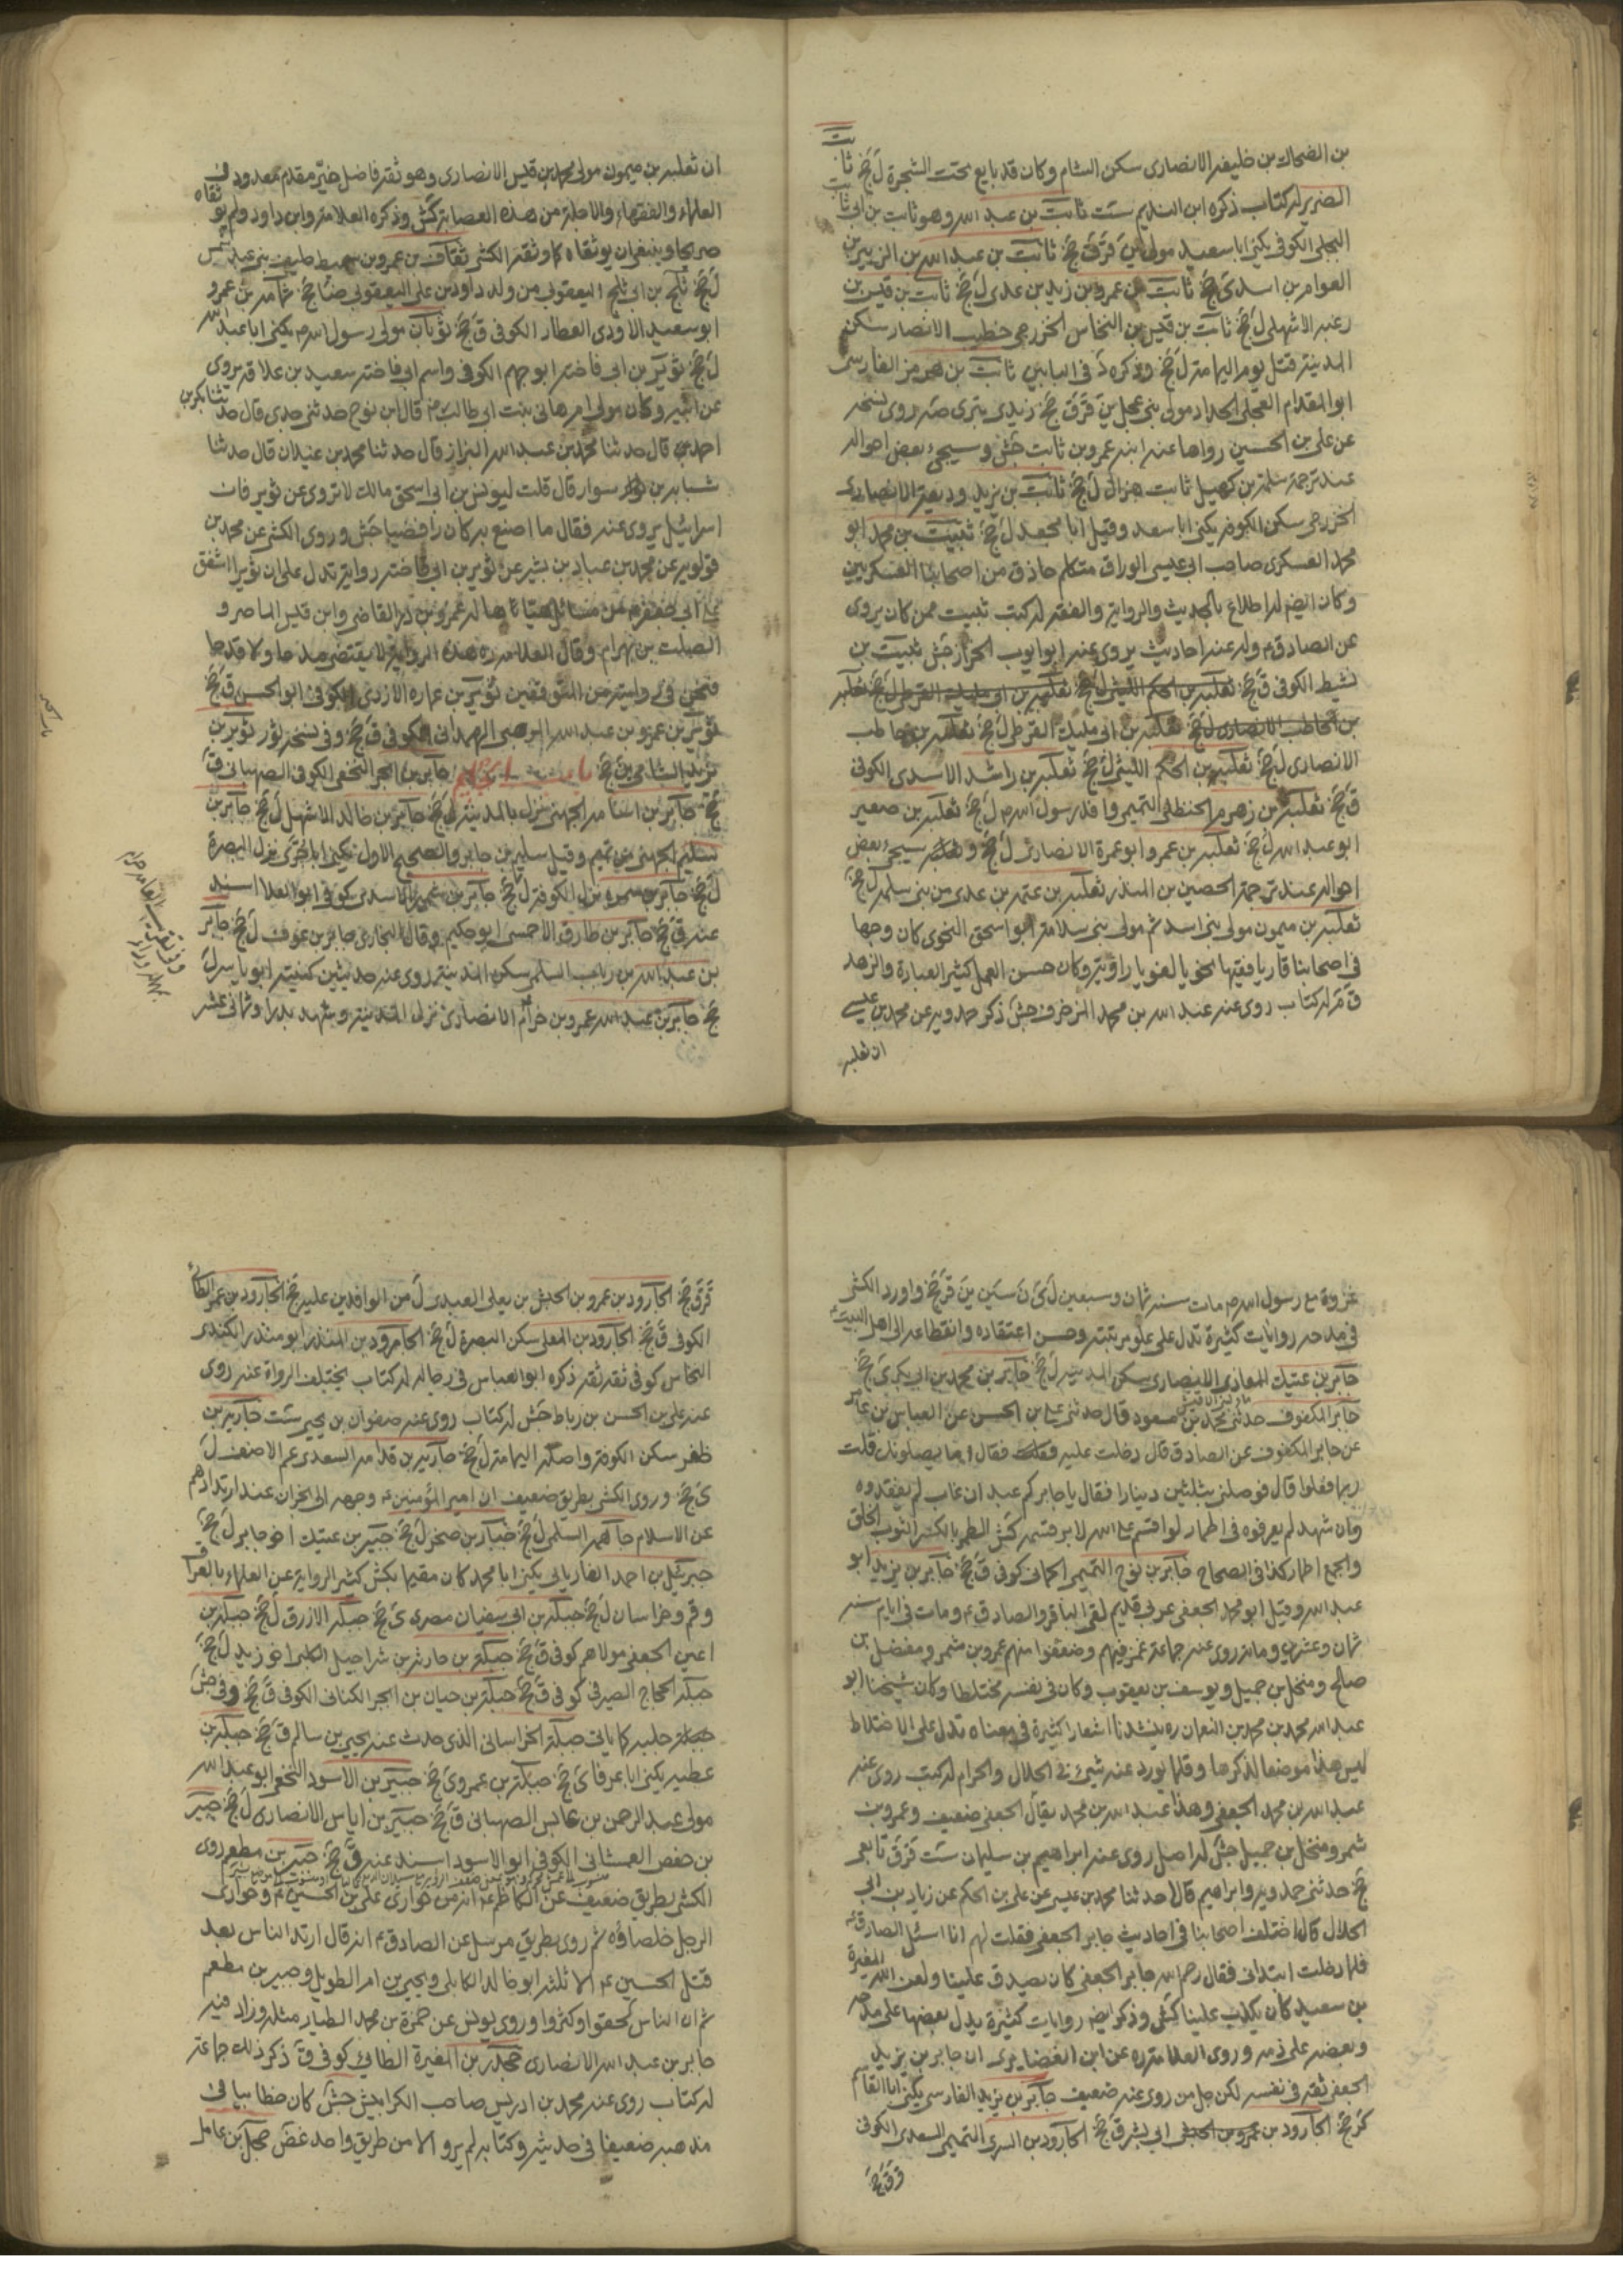 بن الضحاك بن خليفه الانصارى سكن الشام وكان قد بايع تحت الشجرة ل جخ ثابت
الضرير له كتاب ذكره ابن النديم ست ثابت بن عبد الله وهو ثابت بن ابى ثابت
البجلى الكوفى يكنى ابا سعيد مولى ين قر ق جخ ثابت بن عبد الله بن الزبير بن
العوام بن اسد ى جخ ثابت بن عمرو بن زيد بن عدى ل جخ ثابت بن قيس بن
زعبه الاشهلى ل جخ ثابت بن قيس بن النخاس الخزرجى خطيب الانصار سكن
المدينة قتل يوم اليمامة ل جخ وذكره د فى البابين ثابت بن هرمز الفارسى
ابو المقدام العجلى الحداد مولى بنى عجل ين قر ق جخ زيدى بترى صه روى نسخه
عن على بن الحسين رواها عنه ابنه عمرو بن ثابت جش وسيجئ بعض احواله
عند ترجمة سلمة بن كهيل ثابت هزال ل جخ ثابت بن يزيد وديعة الانصارى
الخزرجى سكن الكوفه يكنى ابا سعد وقيل ابا محعد ل جخ ثبيت بن محمد ابو
محمد العسكرى صاحب ابى عيسى الوراق متكلم حاذق من اصحابنا العسكريين
وكان ايضم له اطلاع بالحديث والرواية والفقه له كتب ثبيت ممن كان يروى
عن الصادق ع وله عنه احاديث يروى عنه ابو ايوب الخزاز جش ثبيت بن
نشيط الكوفى ق جخ ثعلبه بن الحكم الليثى ل جخ ثعلبه بن ابى مليك القرظى ل جخ ثعلبه
بن الحاطب الانصارى ل جخ ثعلبه بن ابى مليك القرظى ل جخ ثعلبه بن حاطب
الانصارى ل جخ ثعلبه بن الحكم الليثى ل جخ ثعلبه بن راشد الاسدى الكوفى
ق جخ ثعلبه بن زهدم الحنظلى التميمى وافد رسول الله ص ل جخ ثعلبه بن صعير
ابو عبد الله ل جخ ثعلبه بن عمرو ابو عمرة الانصارى ل جخ سيجئ بعض
احواله عند ترجمة الحصين بن المنذر ثعلبه بن عتمه بن عدى من بنى سلمه ل جخ
ثعلبه بن ميمون مولى بنى اسد ثم مولى بنى سلامة ابو اسحق النحوى كان وجها
فى اصحابنا قاريا فقيها نحويا لغويا راوية وكان حسن العمل كثير العبادة والزهد
ق م له كتاب روى عنه عبد الله بن محمد المزخرف جش ذكر حمدويه عن محمد بن عيسى
ان ثعلبه
ان ثعلبه بن ميمون مولى محمد بن قيس الانصارى وهو ثقه فاضل خيّر مقدم معدود فى
العلماء والفقهاء والاجلة من هذه العصابة كش وذكره العلامة وابن داود ولم يوثقاه
صريحا وينبغى ان يوثقاه كما وثقه الكشى ثقاف بن عمرو بن سميط حليف بنى عبد شمس
ل جخ ثلج بن ابى ثلج اليعقوبى من ولد داود بن على اليعقوبى ضا جخ ثمامه بن عمرو
ابو سعيد الاودى العطار الكوفى ق جخ ثوبان مولى رسول الله ص يكنى ابا عبد الله
ل جخ ثوير بن ابى فاخته ابو جهم الكوفى واسم ابى فاخته سعيد بن علاقه يروى
عن ابيه وكان مولى ام هانى بنت ابى طالب قال ابن نوح حدثنى جدى قال حدثنا بكر بن
احمد قال حدثنا محمد بن عبد الله البزاز قال حدثنا محمد بن غيلان قال حدثنا
شبابه بن سوار قال قلت ليونس بن ابى اسحق مالك لا تروى عن ثوير فان
اسرائيل يروى عنه فقال ما اصنع به كان رافضيا جش وروى الكشى عن محمد بن
قولويه عن محمد بن عباد بن بشير عن ثوير بن ابى فاخته رواية تدل على ان ثويرا اشفق
على ابى جعفر ع من مسائل هيّاها له عمرو بن ذر القاضى وابن قيس الماصر و
الصلت بن بهرام وقال العلامه ره هذه الرواية لا يقتضى مدحا ولا قدحا
فنحن فى روايته من المتوقفين ثوير بن عماره الازدى الكوفى ابو الحسن ق جخ
ثوير بن عمرو بن عبد الله المرهبى الهمدانى الكوفى ق جخ وفى نسخه ثور ثوير بن
يزيد الشامى ين جخ باب الجيم جابر بن ابجر النخعى الكوفى الصهبانى ق
جخ جابر بن اسامه الجهنى نزل بالمدينة ل جخ جابر بن خالد الاشهل ل جخ جابر بن
سليم الهجيمى من تميم وقيل سليم بن جابر والصحيح الاول يكنى ابا جرى نزل البصرة
ل جخ جابر بن سمره نزل الكوفة ل جخ جابر بن شمير الاسدى كوفى ابو العلا اسند
عنه ق جخ جابر بن طارق الاحمسى ابو حكيم وقال البخارى جابر بن عوف ل جخ جابر
بن عبد الله بن رباب السلمى سكن المدينة روى عنه حديثين كنيته ابو ياسر ل
جخ جابر بن عبد الله عمرو بن حزام الانصارى نزل المدينة وشهد بدرا وثمانى عشر
غزوة مع رسول الله ص مات سنه ثمان وسبعين ل ى ن سين ين قر جخ واورد الكشى
فى مدحه روايات كثيرة تدل على علو مرتبته وحسن اعتقاده وانقطاعه الى اهل البيت
جابر بن عتيك المعاذى الانصارى سكن المدينه ل جخ جابر بن محمد بن ابى بكر ى جخ
جابر المكفوف حدثنى محمد بن مسعود قال حدثنى على بن الحسن عن العباس بن عامر
عن جابر المكفوف عن الصادق قال دخلت عليه فقال اما يصلونك قلت
ربما فعلوا قال فوصلنى بثلثين دينارا فقال يا جابر كم عبد ان غاب لم يفقدوه
وان شهد لم يعرفوه فى اطمار لو اقسم على الله لابر قسمه كش الطمر بالكسر الثوب الخلق
والجمع اطمار كذا فى الصحاح جابر بن نوح التميمى الحمانى كوفى ق جخ جابر بن يزيد ابو
عبد الله وقيل ابو محمد الجعفى عربى قديم لقى الباقر والصادق ع ومات فى ايامه سنه
ثمان وعشرين ومائه روى عنه جماعة غمز فيهم وضعفوا منهم عمرو بن شمر ومفضل بن
صالح ومنخل بن جميل ويوسف بن يعقوب وكان فى نفسه مختلطا وكان شيخنا ابو
عبد الله محمد بن محمد بن النعمان ره ينشدنا اشعارا كثيرة فى معناه تدل على الاختلاط
ليس هذا موضعا لذكرها وقلما يورد عنه شيئ فى الحلال والحرام له كتب روى عنه
عبد الله بن محمد الجعفى وهذا عبد الله بن محمد يقال الجعفى ضعيف وعمرو بن
شمر ومنخل بن جميل جش له اصل روى عنه ابراهيم بن سليمان ست قر ق تابعى
جخ حدثنى حمدويه وابراهيم قالا حدثنا محمد بن عيسى عن على بن الحكم عن زياد بن ابى
الحلال قال اختلف اصحابنا فى احاديث جابر الجعفى فقلت لهم انا اسئل الصادق ع
فلما دخلت ابتدانى فقال رحم الله جابر الجعفى كان يصدق علينا ولعن الله المغيرة
بن سعيد كان يكذب علينا كش وذكر ايضه روايات كثيرة يدل بعضها على مدحه
وبعضه على ذمه وروى العلامة ره عن ابن الغضايرى ان جابر بن يزيد
الجعفى ثقه فى نفسه لكن جل من روى عنه ضعيف جابر بن يزيد الفارسى يكنى ابا القاسم
كر جخ الجارود بن عمرو بن الحنش ابى بشر ق جخ الجارود بن السرى التميمى السعدى الكوفى
قر ق جخ
قر ق جخ الجارود بن عمرو بن الحنش بن يعلى العبدى ل من الوافدين عليه جخ الجارود بن عمر الطائى
الكوفى ق جخ الجارود بن المعلى سكن البصرة ل جخ الجارود بن المنذر ابو منذر الكندى
النخاس كوفى ثقه ثقه ذكره ابو العباس فى رجاله له كتاب يختلف الرواة عنه روى
عنه على بن الحسن بن رباط جش له كتاب روى عنه صفوان بن يحيى ست جارية بن
ظفر سكن الكوفة واصله اليمامة ل جخ جارية بن قدامه السعدى عم الاحنف ل
ى جخ وروى الكشى بطريق ضعيف ان امير المؤمنين ع وجهه الى نجران عند ارتدادهم
عن الاسلام جاهمه السلمى ل جخ جبار بن صخر ل جخ جبير بن عتيك اخو جابر ل جخ
جبرئيل بن احمد الفاريابى يكنى ابا محمد كان مقيما بكش كثير الرواية عن العلماء بالعراق
وقم وخراسان لم جخ جبله بن ابى سفيان مصرى ى جخ جبله الازرق ل جخ جبله بن
اعين الجعفى مولاهم كوفى ق جخ جبلة بن حارثه بن شراحيل الكلبى اخو زيد ل جخ
جبله الحجاج الصيرفى كوفى ق جخ جبلة بن حيان بن ابجر الكنانى الكوفى ق جخ وفى جش
حلبه كما ياتى جبلة الخراسانى الذى حدث عنه يحيى بن سالم ق جخ جبلة بن
عطيه يكنى ابا عرفا ى جخ جبلة بن عمرو ى جخ جبير بن الاسود النخعى ابو عبد الله
مولى عبد الرحمن بن عابس الصهبانى ق جخ جبير بن اياس الانصارى ل جخ جبير
بن حفص العمشانى الكوفى ابو الاسود اسند عنه ق جخ جبير بن مطعم روى
الكشى بطريق ضعيف عن الكاظم ع انه من حوارى على بن الحسين ع وحوارى
الرجل خلصاؤه ثم روى بطريق مرسل عن الصادق ع انه قال ارتد الناس بعد
قتل الحسين ع الا ثلثه ابو خالد الكابلى ويحيى بن ام الطويل وجبير بن مطعم
ثم ان الناس لحقوا وكثروا وروى يونس عن حمزة بن محمد الطيار مثله وزاد فيه
جابر بن عبد الله الانصارى جحدر بن المغيرة الطائى كوفى ق ذكر ذلك جماعة
له كتاب روى عنه محمد بن ادريس صاحب الكرابيش جش كان خطابيا فى
مذهبه ضعيفا فى حديثه وكتابه لم يرو الا من طريق واحد غض جحل بن عامل